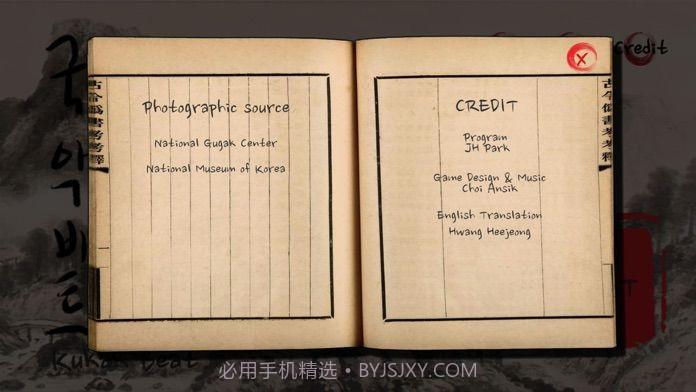 Credit
국
악
비
트
Kukak Beat
Photographic source
National Gugak Center
National Museum of Korea
CREDIT
Program
JH Park
Game Design & Music
Choi Ansik
English Translation
Hwang Heejeong
必用手机精选・BYJSJXY.COM